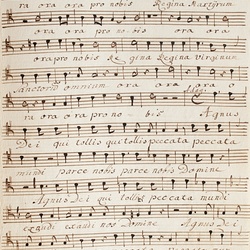 ra ora ora pro nobis Regina Martyrum
ora ora pro nobis ora ora
ora pro nobis Regina Regina Virginum
Sanctorum omnium ora ora ora o
ra ora ora pro no - bis Agnus
De i qui tollis qui tollis peccata peccata
mundi parce nobis parce nobis Domine
Agnus De i qui tollis peccata mundi
exaudi exaudi nos Domine Agnus Dei